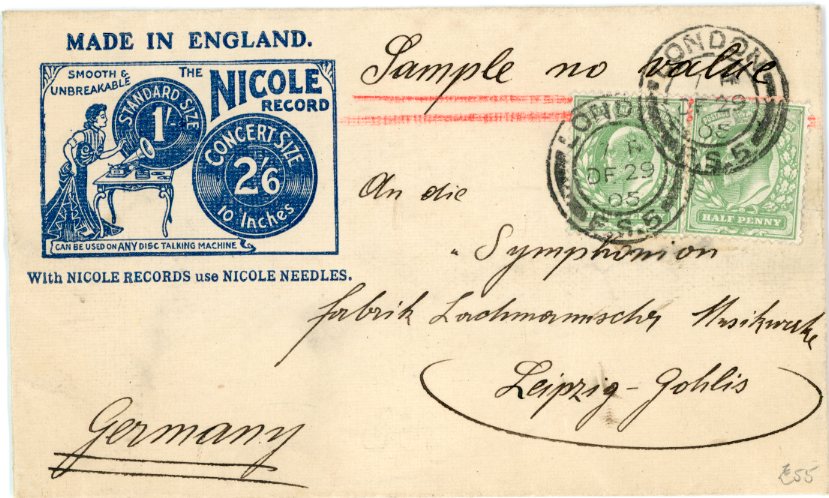 MADE IN ENGLAND.
SMOOTH &
UNBREAKABLE
THE
NICOLE
RECORD
STANDARD SIZE
1/-
CONCERT SIZE
2/6
10 Inches
CAN BE USED ON ANY DISC TALKING MACHINE
With NICOLE RECORDS use NICOLE NEEDLES.
Sample no value
LONDON
DE 29
05
F.S.5
LONDON
DE 29
05
F.S.5
HALF PENNY
An die
Symphonion
fabrik Lochmannscher Musikwerke
Leipzig-Gohlis
Germany
£55